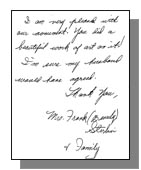 I am very pleased with
our monument. You did a
beautiful work of art on it!
I'm sure my husband
would have agreed.
Thank You,
Mrs. Frank (Beverly)
& Family